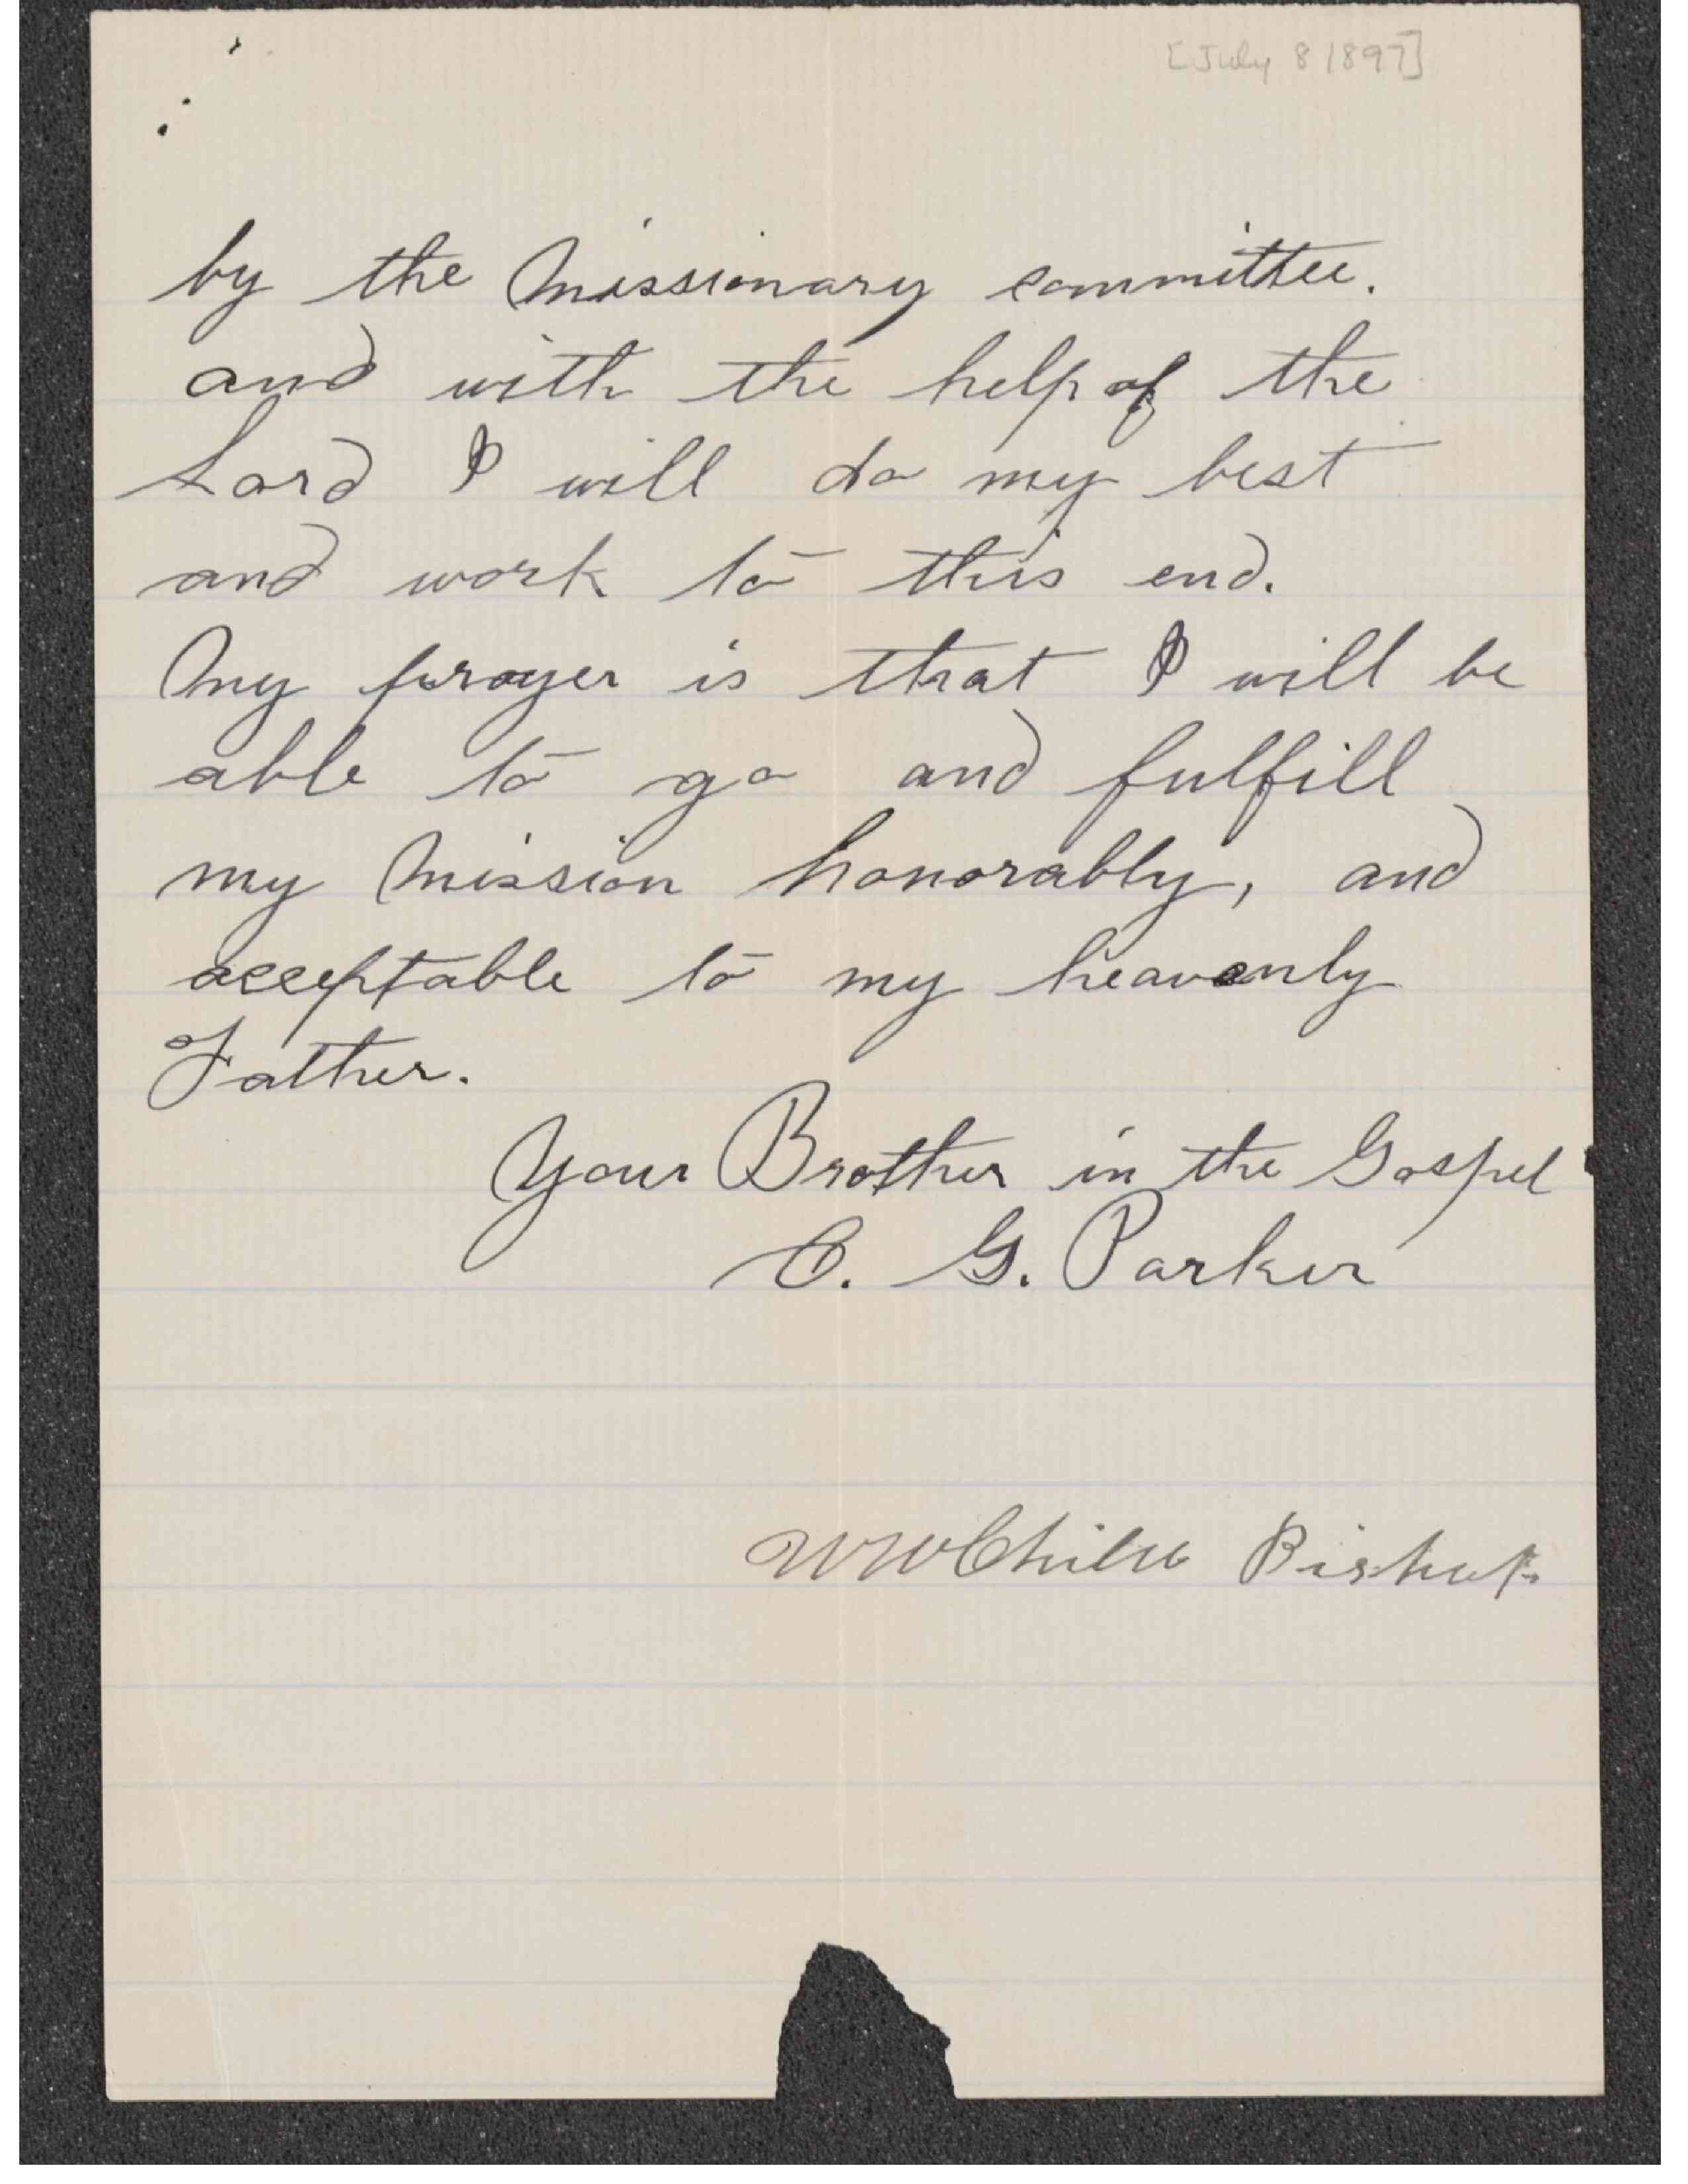 [July 8 1897]
by the Missionary committee.
and with the help of the
Lord I will do my best
and work to this end.
My prayer is that I will be
able to go and fulfill
my Mission honorably, and
acceptable to my heavenly
Father.
Your Brother in the Gospel
C. G. Parker
W W Childs Bishop